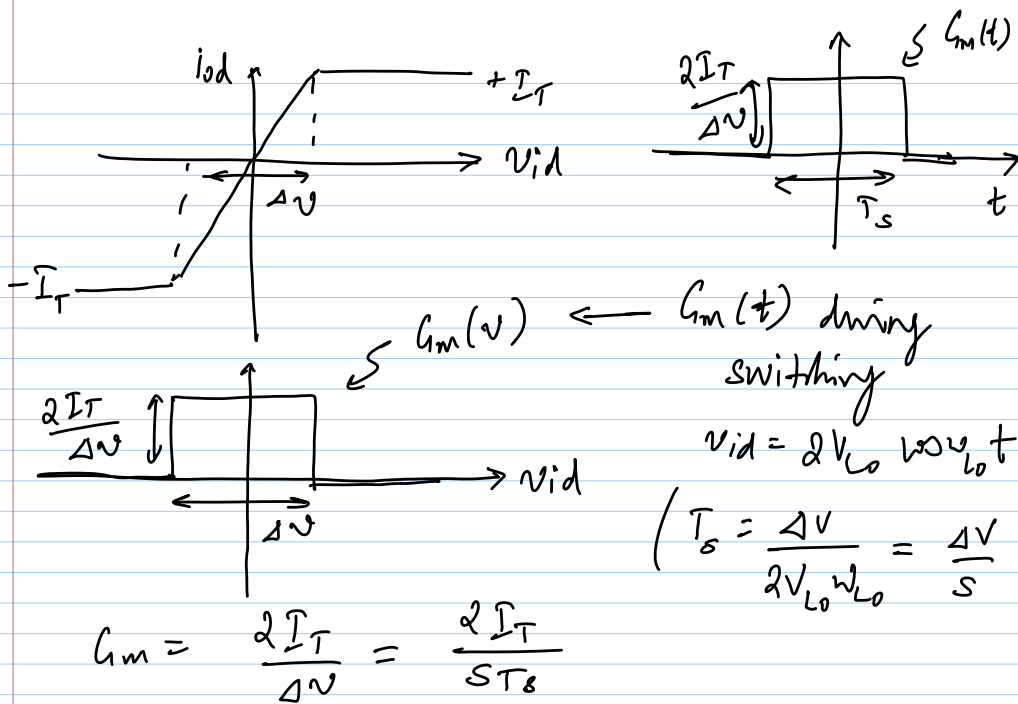 iod
+ I_T
Vid
Δv
-I_T
2I_T/Δv
Gm(t)
T_s
t
Gm(v) ← Gm(t) during
switching
2I_T/Δv
Vid
Δv
vid = 2V_LO cos ω_LO t
( T_s = ΔV/(2V_LO ω_LO) = ΔV/S
Gm = 2I_T/Δv = 2I_T/(S T_s)